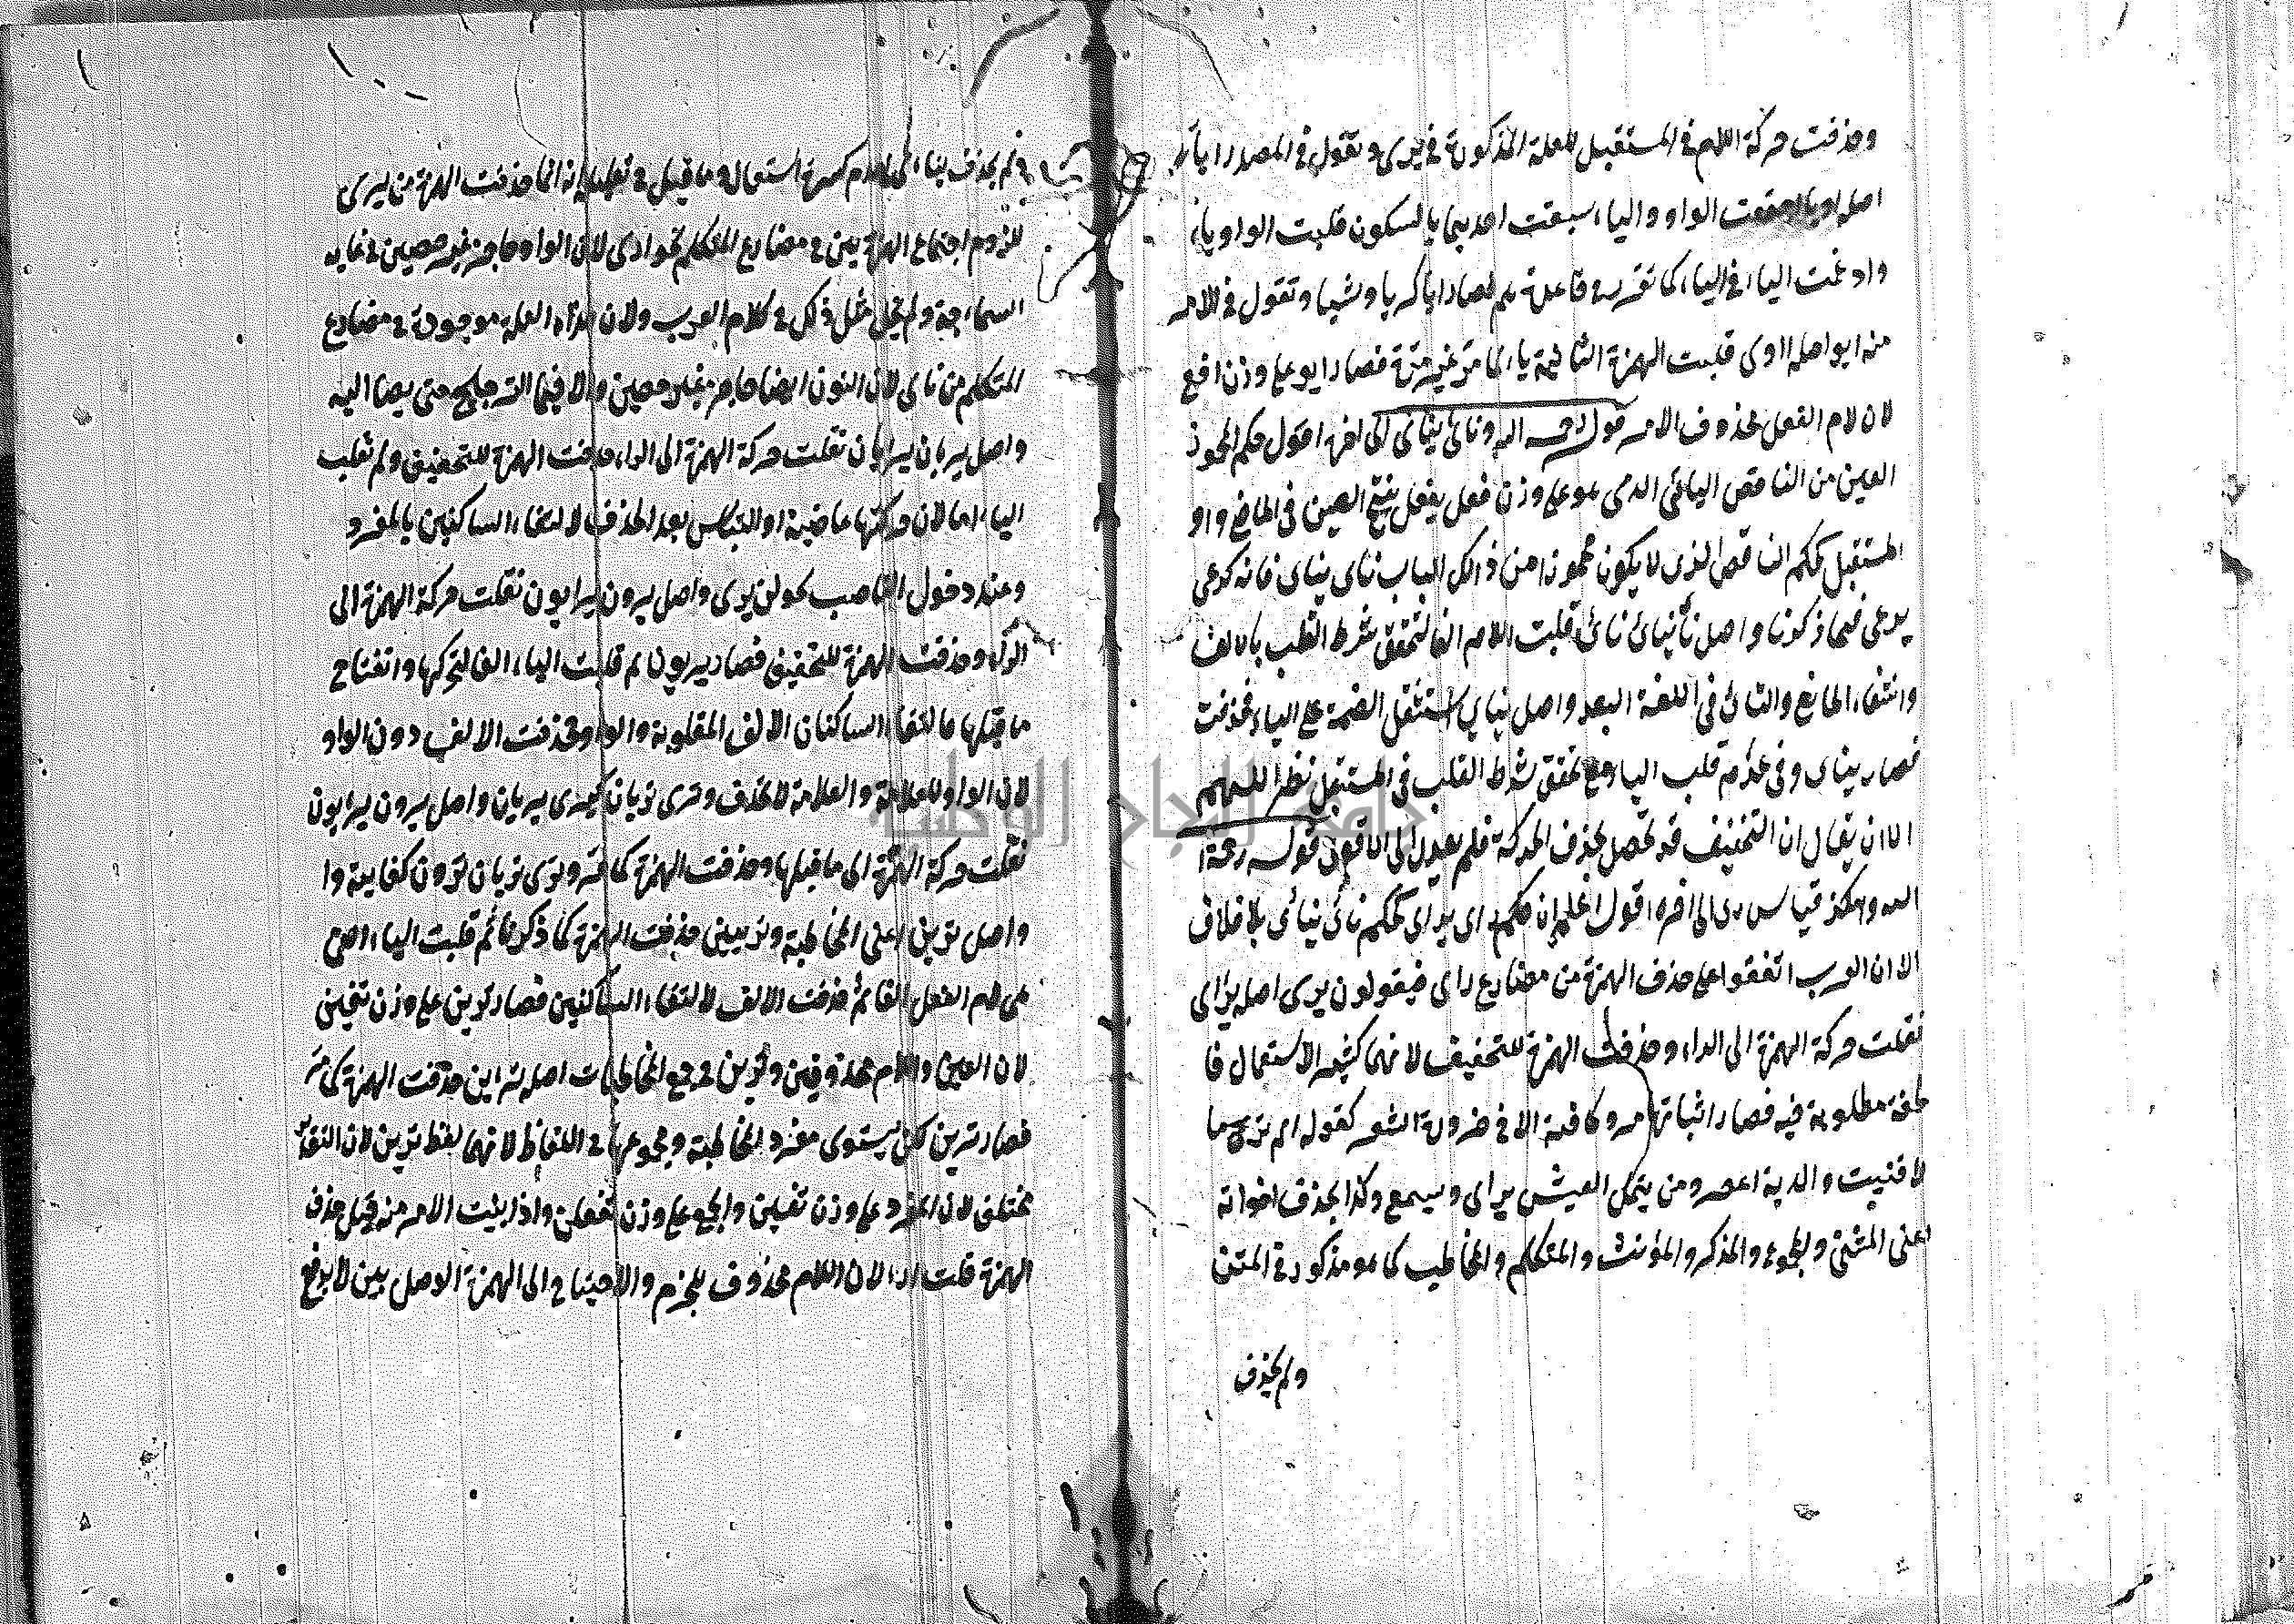 وحذفت حركة اللام في المستقبل للعلة المذكورة في يرى وتقول في المصدر اياً
اصله اويا اجتمعت الواو والياء سبقت احديهما بالسكون قلبت الواو ياء
وادغمت الياء في الياء كما تقرر في قاعدة فصار اياً وتقول في الامر
منه ايو اصله ااوى قلبت الهمزة الثانية يا الى مر غير مرة فصار ايو على وزن افع
لان لام الفعل محذوف الامر قوله رحمه الله ونائ ينأى الى اخره اقول حكم المهموز
العين من الناقص اليائي الذي هو على وزن فعل يفعل بفتح العين في الماضي و او
المستقبل كحكم الناقص الذي لا يكون مهموزا من ذلك الباب ناى يناى فانه كرعى
يرعى فيما ذكرنا واصل نأى ينأى نائ قلبت اللام الفا لتحقق شرط القلب بالالف
وانتفاء المانع والنائ في اللغة البعد واصل يناى يناي استثقل الضمة على الياء فحذفت
فصار يناى وفي عدم قلب الياء مع تحقق شرط القلب في المستقبل نظر اللهم
الا ان يقال ان التخفيف قد تحصل بحذف الحركة فلم يعدل الى الاقوى قوله رحمة
الله وهكذا قياس رى الى اخره اقول اعلم ان حكم راى يراى كحكم نائ ينائ بلا خلاف
الا ان العرب اتفقوا على حذف الهمزة من مضارع راى فيقولون يرى اصله يراى
نقلت حركة الهمزة الى الراء وحذفت الهمزة للتخفيف لانهما كثير الاستعمال فا
لخفة مطلوبة فيه فصار اثباتها مرو كا فية الا في ضرورة الشعر كقوله الم تر ما
لاقيت والدهر اعصر ومن يتمل العيش يراى ويسمع وكذا بحذف اخواته
اعنى المثنى والمجموع والمذكر والمؤنث والمتكلم والمخاطب كما هو مذكور في المتن
ولم يحذف
ولم يحذف يناى كما لعدم كسرة استعمال وما قيل في تعليله انه انما حذفت الهمزة من ليرى
للزوم اجتماع الهمزتين في مضارع المتكلم نحو اارى لان الواو حاجز غير حصين في غاية
السماجة ولم يجئ مثل ذلك في كلام العرب ولان هذه العلة موجودة في مضارع
المتكلم من ناى لان النون ايضا حاجز غير حصين حتى يصا اليه
واصل يريان يرايان نقلت حركة الهمزة الى الراء حذفت الهمزة للتخفيف ولم تقلب
الياء اما لان حركتها عارضية او لالتباس بعد الحذف لالتقاء الساكنين بالمفرد
وعند دخول الناصب نحو لن يرى واصل يرون يرايون نقلت حركة الهمزة الى
الراء وحذفت الهمزة للتخفيف فصار يريون ثم قلبت الياء الفا لتحركها وانفتاح
ما قبلها فالتقاء الساكنان الالف المقلوبة والواو فحذفت الالف دون الواو
لان الواو للعلامة والعلامة لا تحذف وترى تريان كيرى يريان واصل يرون يرايون
نقلت حركة الهمزة الى ما قبلها وحذفت الهمزة كما مر وترى تريان ترون كغايبة وا
واصل ترين اعنى المخاطبة وترءيين حذفت الهمزة كما ذكرنا ثم قلبت الياء اعنى
هي لام الفعل الفا ثم حذفت الالف لالتقاء الساكنين فصار ترين على وزن تفين
لان العين واللام محذوفين وترين في جمع المخاطبات اصله تراين حذفت الهمزة كما مر
فصار ترين يستوى مفرد المخاطبة ومجموعها في اللفظ لانهما لفظ ترين لان التقدير
مختلف لان المفرد على وزن تفين والجمع على وزن تفلن واذا بنيت الامر منه قبل حذف
الهمزة قلت ارء لان اللام محذوف للجزم والاحتياج الى الهمزة الوصل بين لا يرفع